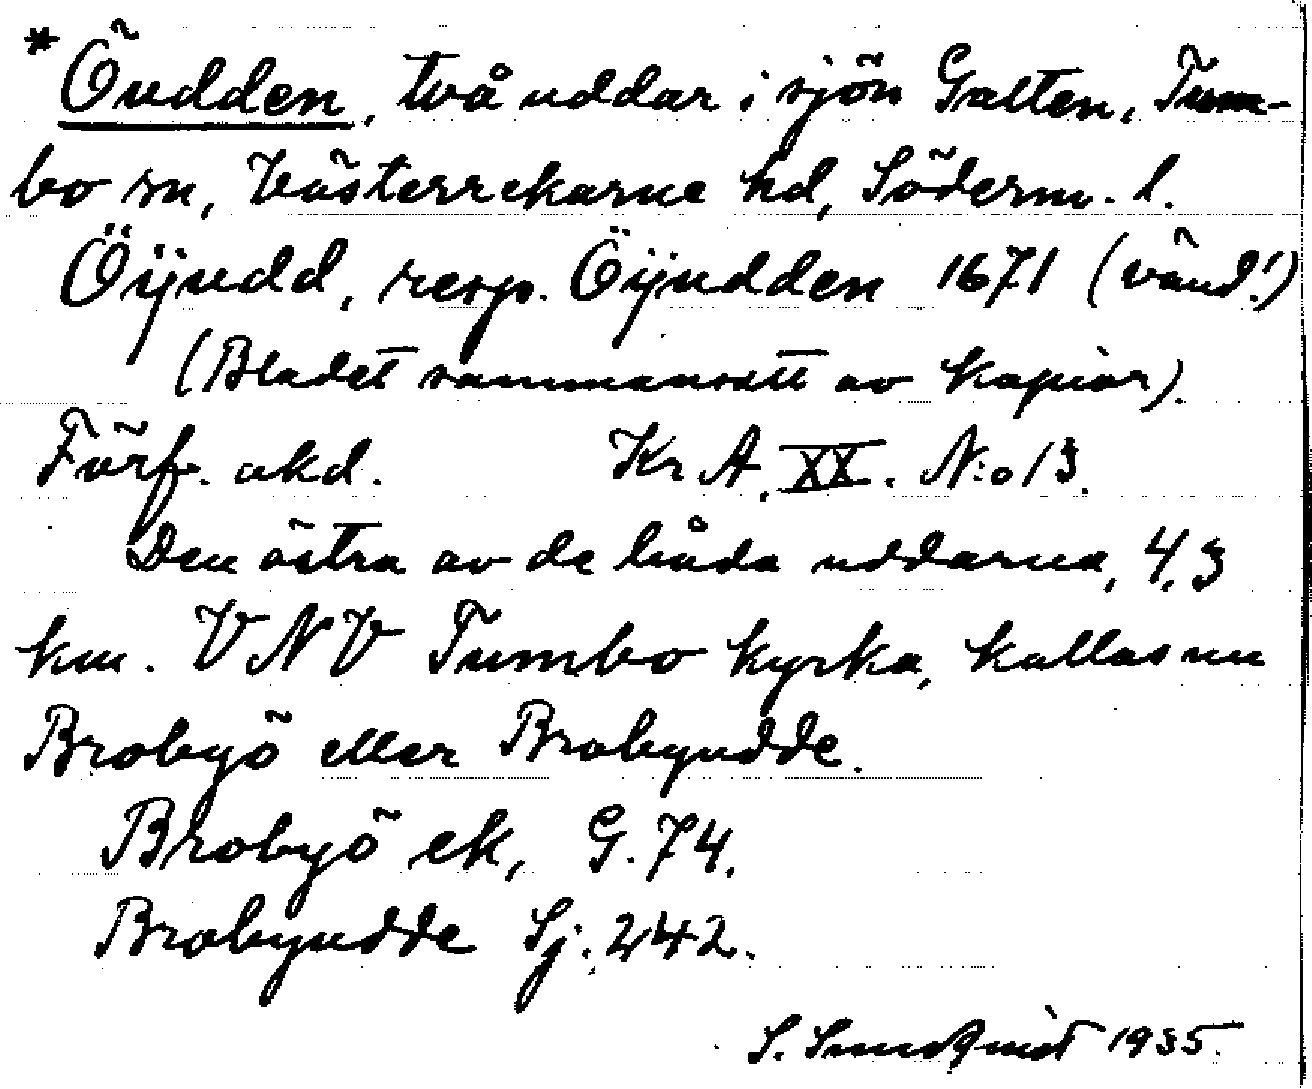 * Öudden, två uddar i sjön Galten, Tum-
bo sn, Västerrekarne hd, Söderm. l.
Öÿudd, resp. Öÿudden 1671 (vänd!)
(Bladet sammansatt av kopior).
Förf. akd. Kr A. XX. N:o 13.
Den östra av de båda uddarna, 4,3
km. VNV Tumbo kyrka, kallas nu
Brobyö eller Brobyudde.
Brobyö ek, G. 74.
Brobyudde Sj. 242.
S. Sundqvist 1935.